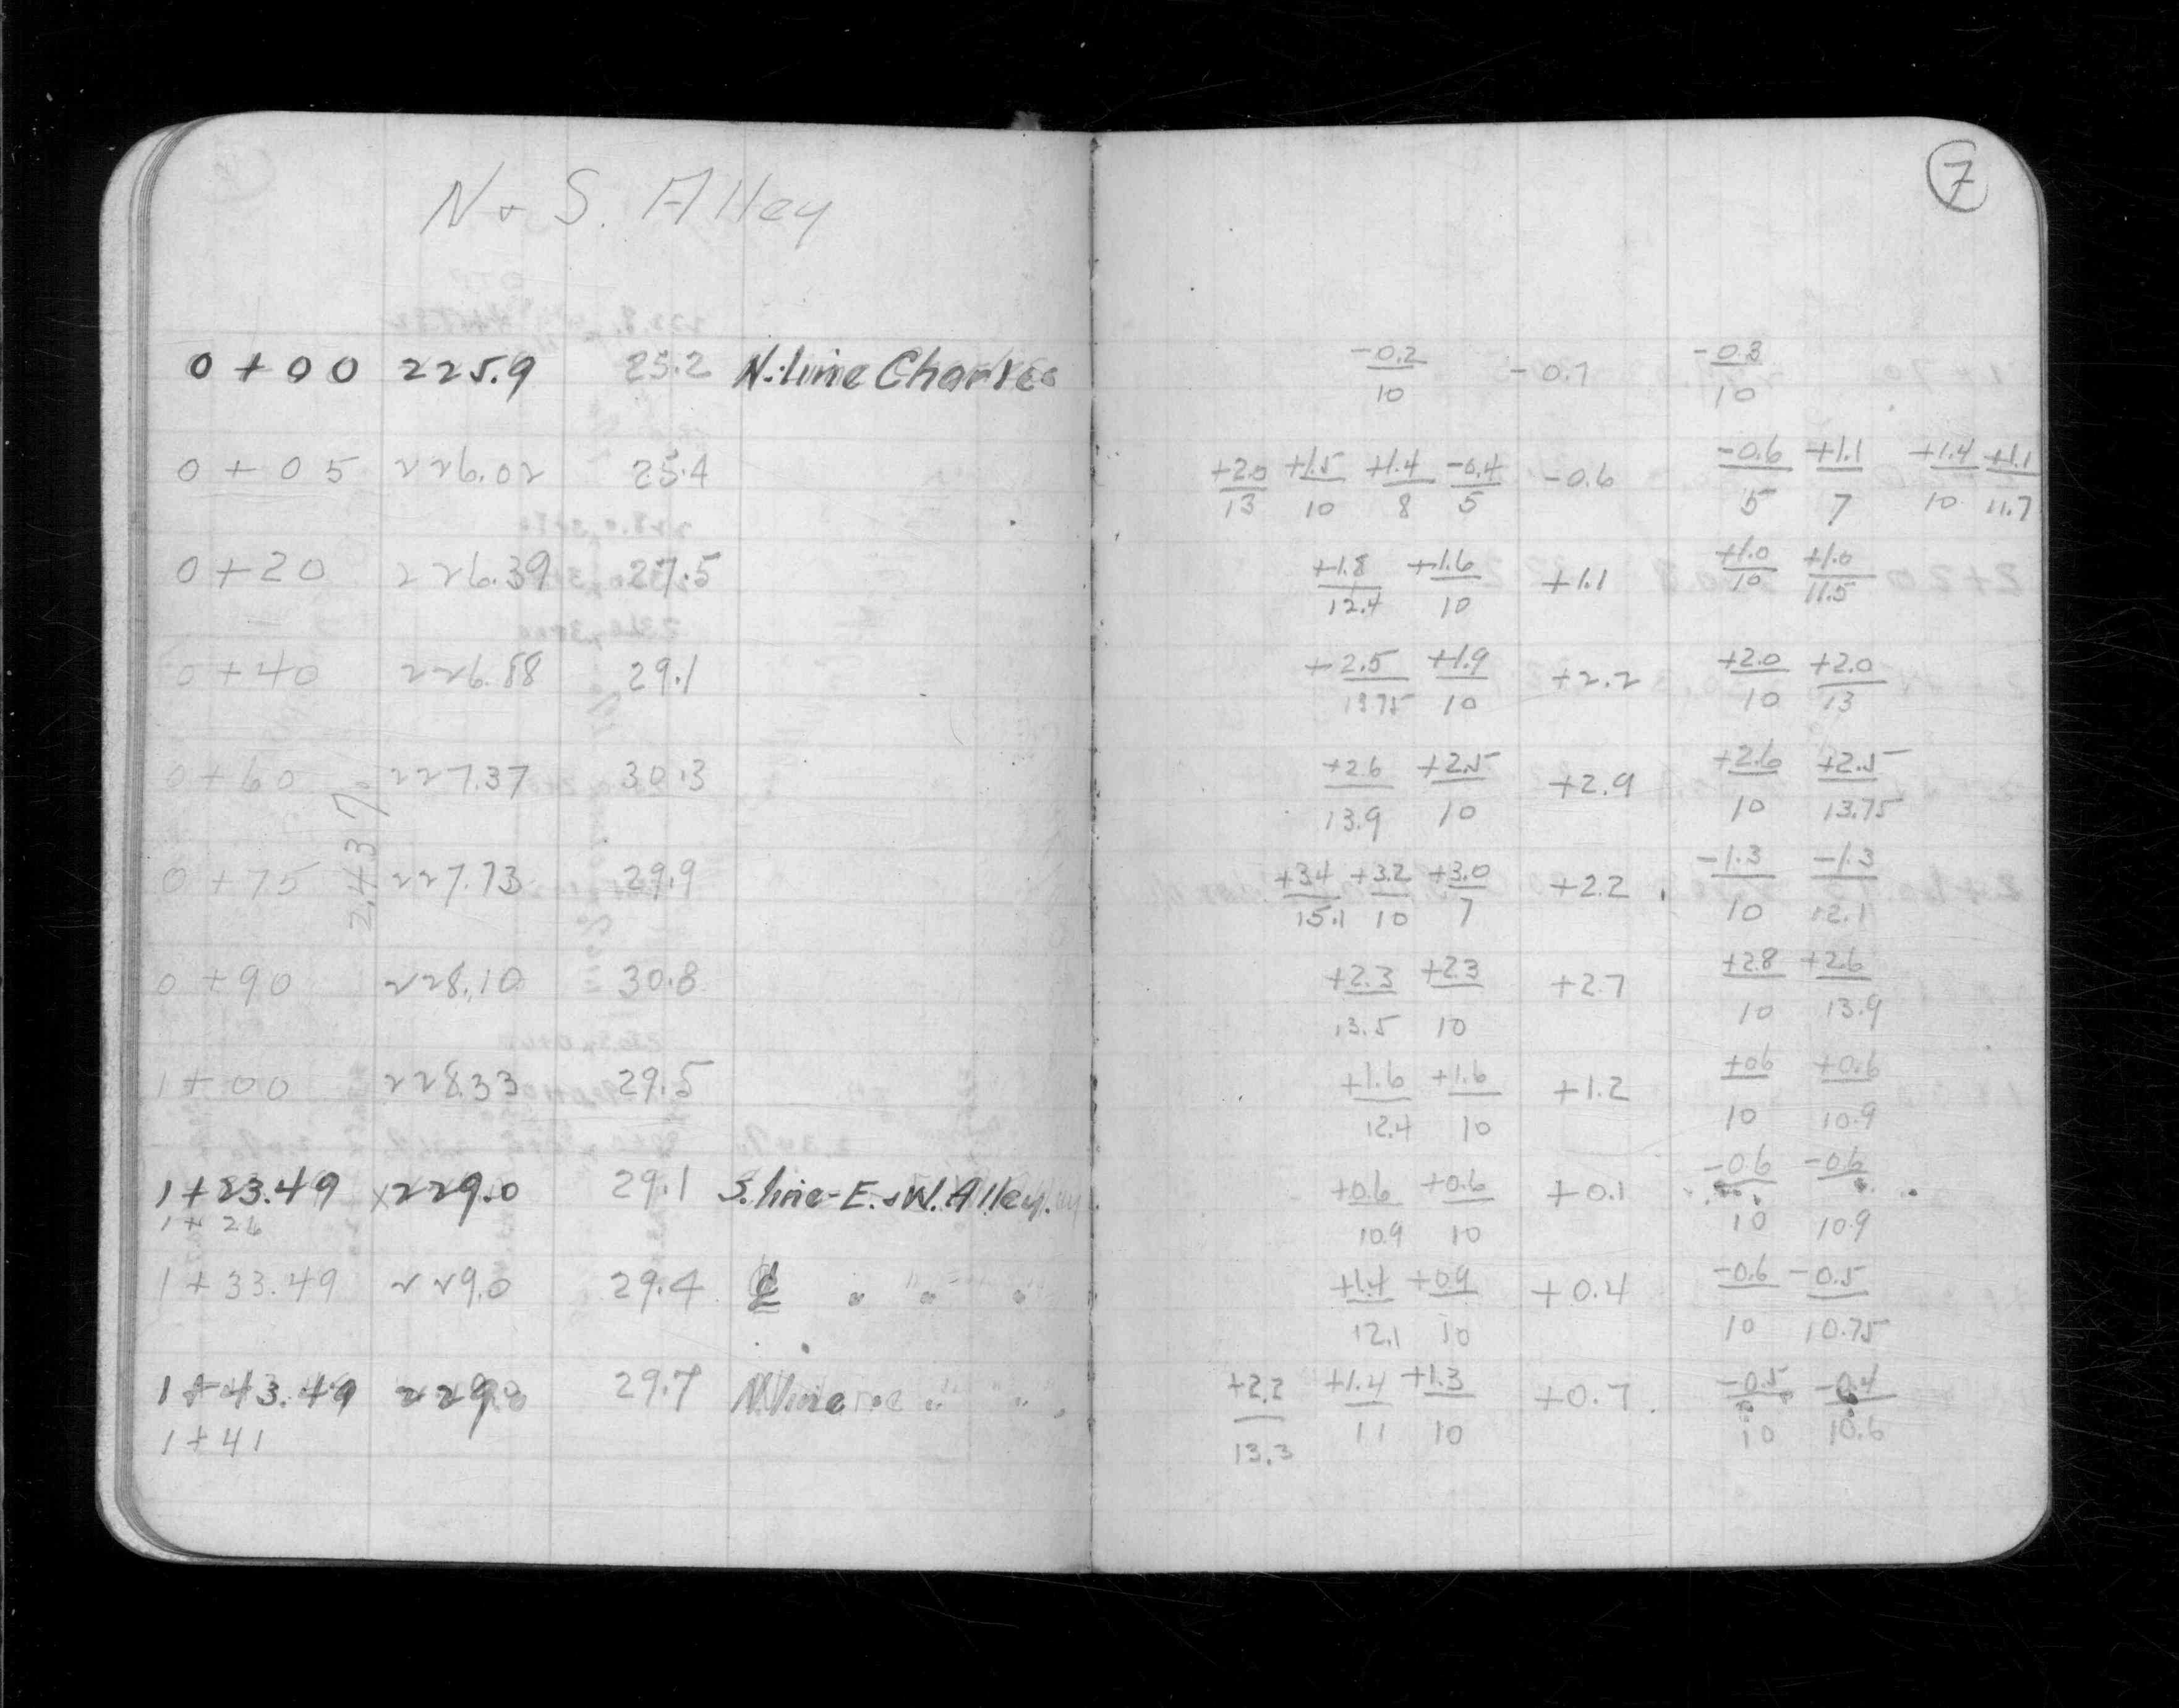 N + S. Alley
7
0 + 00 225.9 25.2 N. line Charles -0.2/10 -0.7 -0.3/10
0 + 05 226.02 25.4 +2.0/13 +1.5/10 +1.4/8 -0.4/5 -0.6 -0.6/5 +1.1/7 +1.4/10 +1.1/11.7
0 + 20 226.39 27.5 +1.8/12.4 +1.6/10 +1.1 +1.0/10 +1.0/11.5
0 + 40 226.88 29.1 +2.5/13.75 +1.9/10 +2.2 +2.0/10 +2.0/13
0 + 60 227.37 30.3 +2.6/13.9 +2.5/10 +2.9 +2.6/10 +2.5/13.75
2.437%
0 + 75 227.73 29.9 +3.4/15.1 +3.2/10 +3.0/7 +2.2 -1.3/10 -1.3/12.1
0 + 90 228.10 30.8 +2.3/13.5 +2.3/10 +2.7 +2.8/10 +2.6/13.9
1 + 00 228.33 29.5 +1.6/12.4 +1.6/10 +1.2 +0.6/10 +0.6/10.9
1 + 23.49 x229.0 29.1 S. line - E. + W. Alley. +0.6/10.9 +0.6/10 +0.1 -0.6/10 -0.6/10.9
1 + 26
1 + 33.49 229.0 29.4 ℄ " " " +1.4/12.1 +0.9/10 +0.4 -0.6/10 -0.5/10.75
1 + 43.49 229.0 29.7 N. line " " +2.2/13.3 +1.4/11 +1.3/10 +0.7 -0.5/10 -0.4/10.6
1 + 41